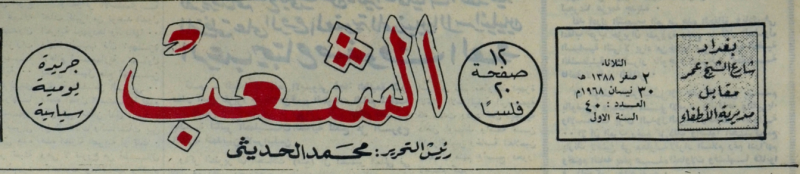 بغداد
شارع الشيخ عمر
مقابل
مديرية الأطفاء
الثلاثاء
٢ صفر ١٣٨٨ هـ
٣٠ نيسان ١٩٦٨م
العدد : ٤٠
السنة الاول
١٢
صفحة
٢٠
فلسًا
الشعب
جريدة
يومية
سياسية
رئيس التحرير : محمد الحديثي